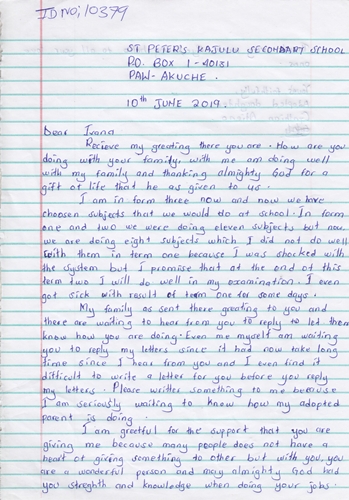 ID No; 10379
ST PETER'S KAJULU SECONDARY SCHOOL
P.O. BOX 1 - 40131
PAW-AKUCHE.
10TH JUNE 2019.
Dear Irina
Recieve my greeting there you are. How are you
doing with your family, with me am doing well
with my family and thanking almighty God for a
gift of life that he as given to us.
I am in form three now and now we have
choosen subjects that we would do at school. In form
one and two we were doing eleven subjects but now
we are doing eight subjects which I did not do well
with them in term one because I was shocked with
the system but I promise that at the end of this
term two I will do well in my examination. I even
got sick with result of term one for some days.
My family as sent there greating to you and
there are waiting to hear from you to reply to let them
know how you are doing. Even me myself am waiting
you to reply my letters since it had now take long
time since I hear from you and I even find it
difficult to write a letter for you before you reply
my letters. Please written something to me because
I am seriously waiting to know how my adopted
parent is doing.
I am greatful for the support that you are
giving me because many people does not have a
heart of giving something to other but with you, you
are a wonderful person and may almighty God had
you streghth and knowledge when doing your jobs.